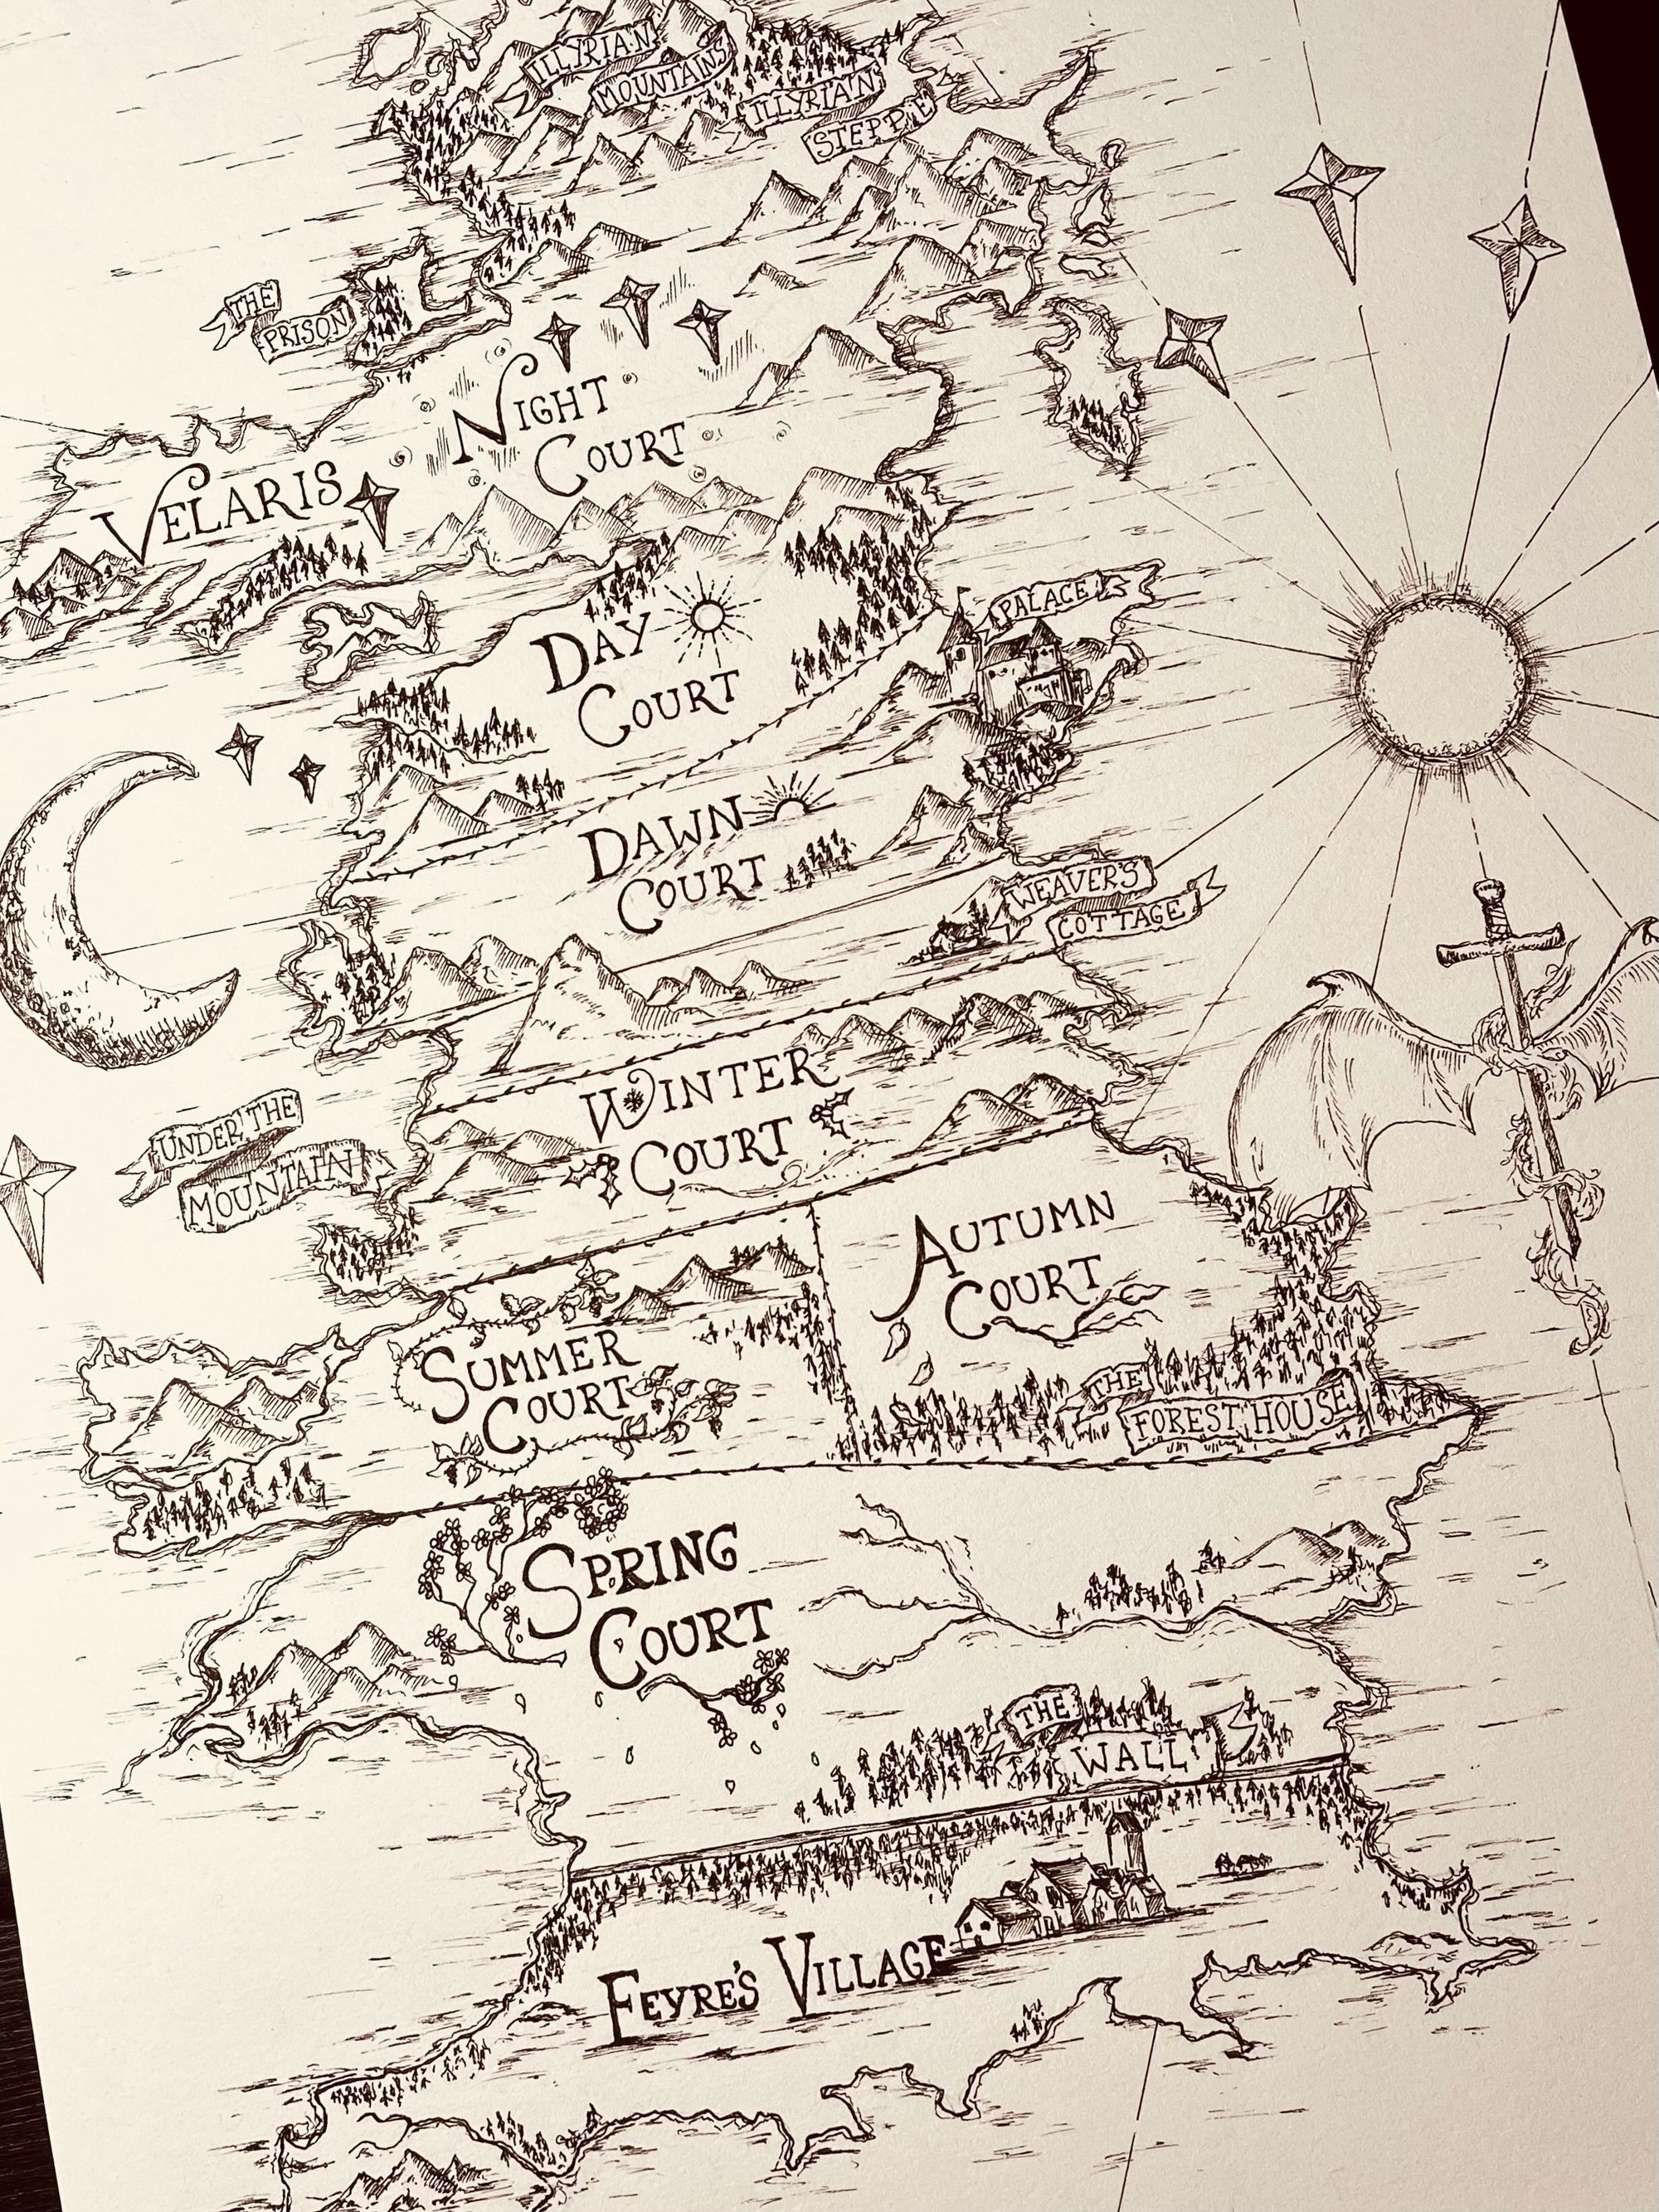 ILLYRIAN
MOUNTAINS
ILLYRIAN
STEPPE
THE
PRISON
NIGHT
COURT
VELARIS
PALACE
DAY
COURT
DAWN
COURT
WEAVER'S
COTTAGE
WINTER
COURT
UNDER THE
MOUNTAIN
AUTUMN
COURT
SUMMER
COURT
THE
FOREST HOUSE
SPRING
COURT
THE
WALL
FEYRE'S VILLAGE